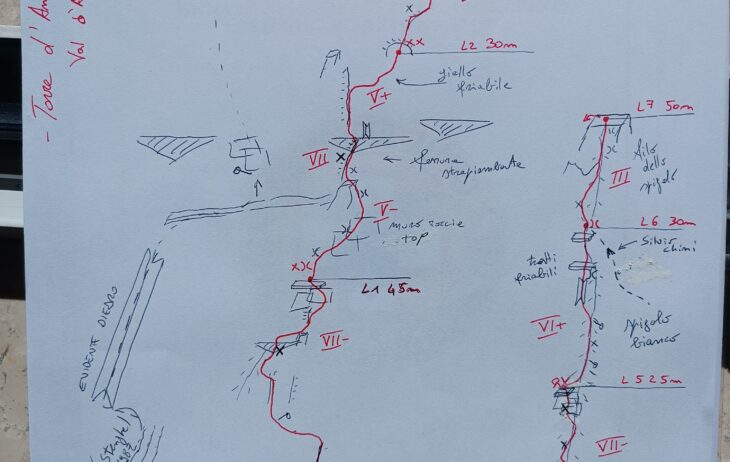 - Torre d'Am
Val d'A
L2 30m
giallo
friabile
V+
VII
fessura
strapiombante
V-
muro roccie
top
L1 45m
VII-
EVIDENTE DIEDRO
L7 50m
filo
dello
spigolo
III
L6 30m
Silvio
chimi
tratti
friabili
VI+
spigolo
bianco
L5 25m
VII-